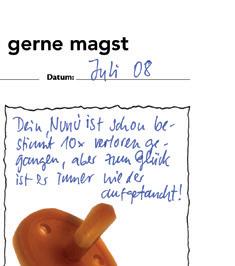 gerne magst
Datum: Juli 08
Dein "Nunu" ist schon be-
stimmt 10x verloren ge-
gangen, aber zum Glück
ist es immer wieder
aufgetaucht!